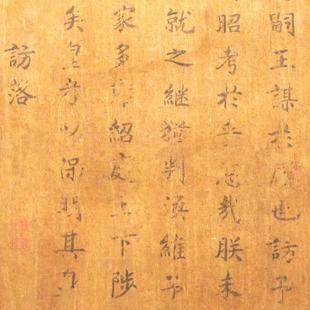 嗣王謀於廟也訪予
昭考於乎悠哉朕未
就之繼猶判渙維予
家多難紹庭上下陟
矣皇考以保明其身
訪落